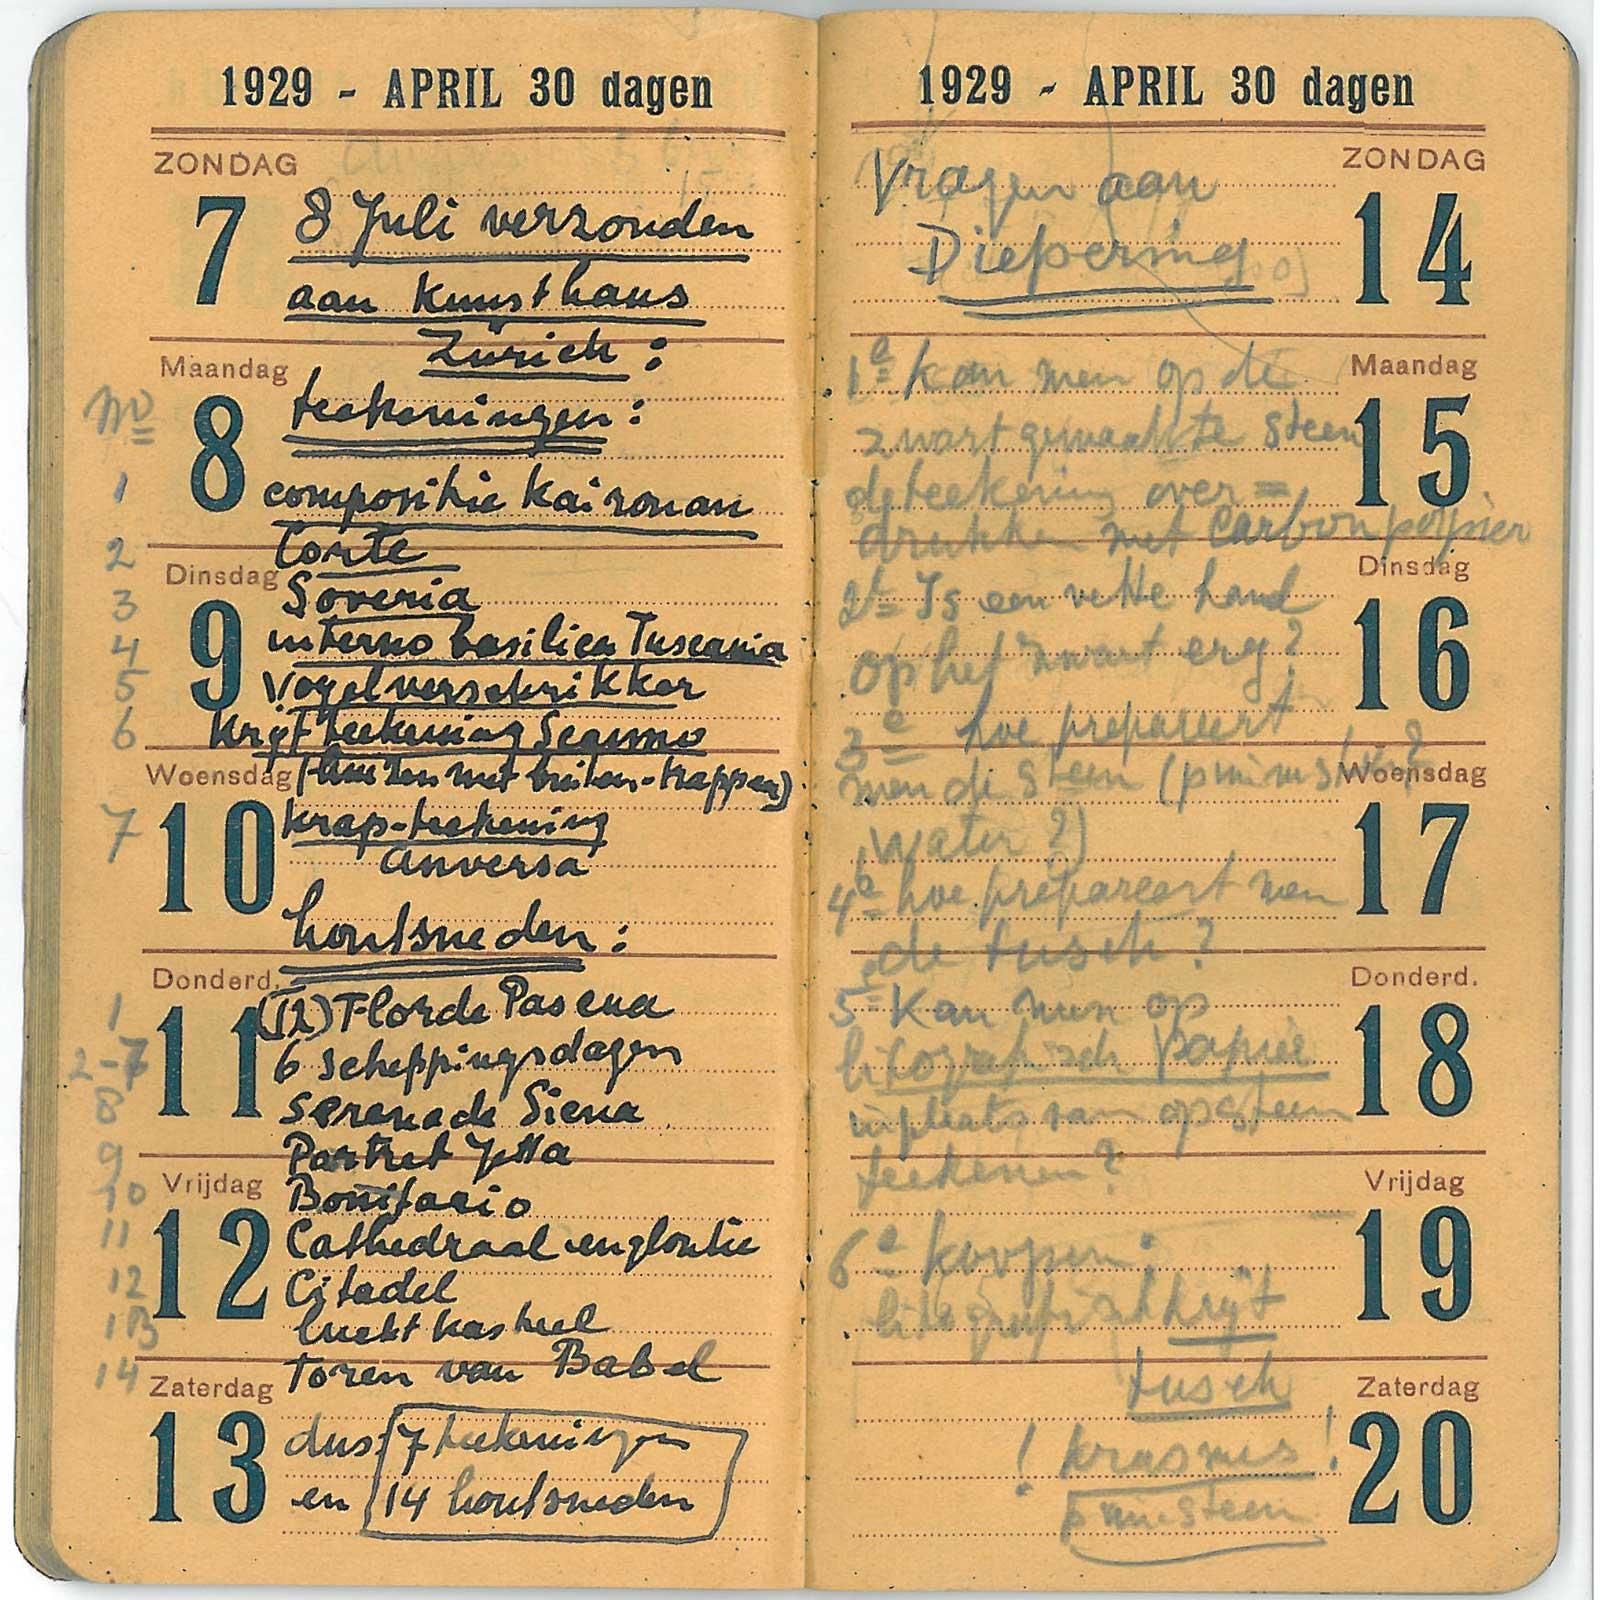 1929 - APRIL 30 dagen
ZONDAG
7
8 Juli verzonden
aan Kunsthaus
Zürich:
Maandag
8
teekeningen:
No
1 compositie Kairouan
2 Corte
Dinsdag
9
3 Soveria
4 interno basilica Tuscania
5 Vogelverschrikker
6 Krijtteekening Scanno
Woensdag
10
(huizen met buiten-trappen)
7 krap-teekening
Anversa
houtsneden:
Donderd.
11
1 (12) Flor de Pascua
2-7 6 scheppingsdagen
8 serenade Siena
9 Portret Jetta
Vrijdag
12
10 Bonifacio
11 Cathedraal engloutie
12 Citadel
13 luchtkasteel
14 toren van Babel
Zaterdag
13
dus 7 teekeningen
en 14 houtsneden
1929 - APRIL 30 dagen
ZONDAG
14
Vragen aan
Diepering
Maandag
15
1e kan men op de
zwart gemaakte steen
de teekening over=
drukken met Carbonpapier
Dinsdag
16
2e Is een vette hand
op het zwart erg?
3e hoe prepareert
Woensdag
17
men de steen (puimsteen?
water?)
4e hoe prepareert men
de tusch?
Donderd.
18
5e Kan men op
litografisch papier
inplaats van op steen
teekenen?
Vrijdag
19
6e koopen:
litografisch krijt
tusch
Zaterdag
20
! krasmes !
puimsteen